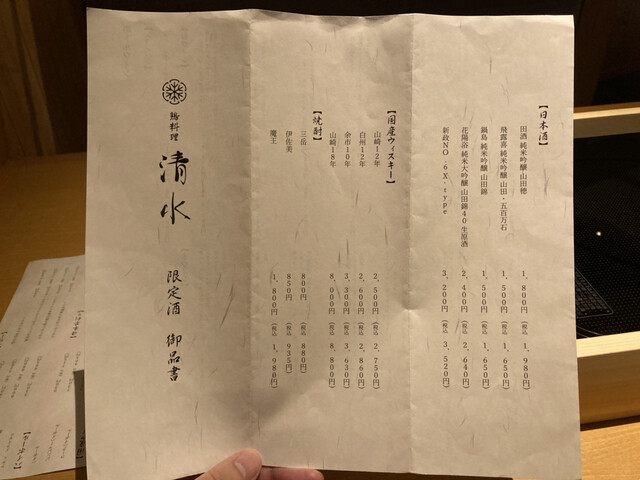 【日本酒】
田酒 純米吟醸 山田穂 1,800円 (税込 1,980円)
飛露喜 純米吟醸 山田・五百万石 1,500円 (税込 1,650円)
鍋島 純米吟醸 山田錦 1,500円 (税込 1,650円)
花陽浴 純米大吟醸 山田錦40 生原酒 2,400円 (税込 2,640円)
新政NO.6X-type 3,200円 (税込 3,520円)
【国産ウィスキー】
山崎12年 2,500円 (税込 2,750円)
白州12年 2,600円 (税込 2,860円)
余市10年 3,300円 (税込 3,630円)
山崎18年 8,000円 (税込 8,800円)
【焼酎】
三岳 800円 (税込 880円)
伊佐美 850円 (税込 935円)
魔王 1,800円 (税込 1,980円)
鶏料理
清水
限定酒 御品書